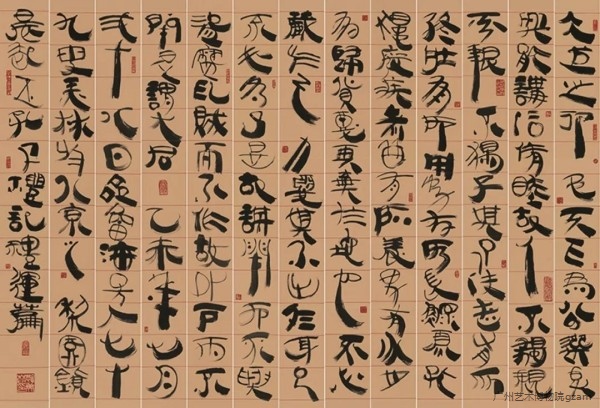 大道之行也天下為公選賢
與能講信修睦故人不獨親
其親不獨子其子使老有所
終壯有所用幼有所長鰥寡孤
獨廢疾者皆有所養男有分女
有歸貨惡其棄於地也不必
藏於己力惡其不出於身也
不必為己是故謀閉而不興
盜竊亂賊而不作故外戶而不
閉是謂大同 乙未年七月
二十八日 海 人七十
九叟 京
孔子禮記禮運篇
广州艺术博物院gzam